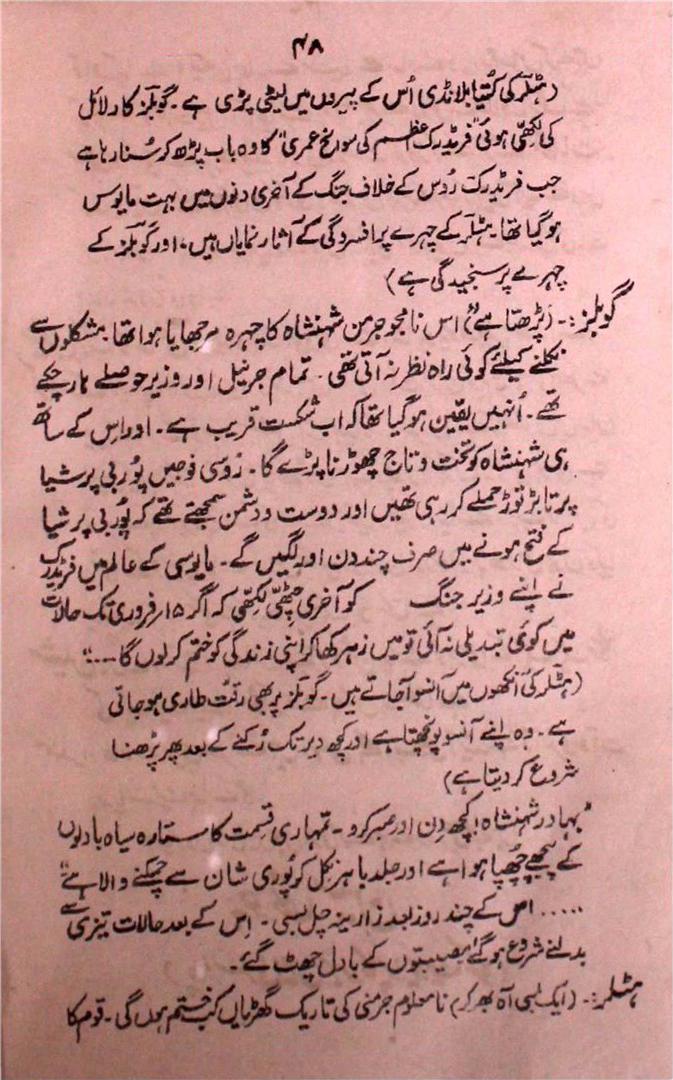 ۴۸
(ہٹلر کی کتیا بلانڈی اُس کے پیروں میں لیٹی پڑی ہے۔ گوبلز کارلائل
کی لکھی ہوئی "فریڈرک اعظم کی سوانح عمری" کا وہ باب پڑھ کر سُنا رہا ہے
جب فریڈرک رُوس کے خلاف جنگ کے آخری دنوں میں بہت مایوس
ہو گیا تھا۔ ہٹلر کے چہرے پر افسردگی کے آثار نمایاں ہیں، اور گوبلز کے
چہرے پر سنجیدگی ہے)
گوبلز:۔ (پڑھتا ہے) "اس نامجو جرمن شہنشاہ کا چہرہ مرجھایا ہوا تھا۔ مشکلوں سے
نکلنے کیلئے کوئی راہ نظر نہ آتی تھی۔ تمام جرنیل اور وزیر حوصلے ہار چکے
تھے۔ اُنہیں یقین ہو گیا تھا کہ اب شکست قریب ہے۔ اور اس کے ساتھ
ہی شہنشاہ کو تخت و تاج چھوڑنا پڑے گا۔ رُوسی فوجیں پُوربی پرشیا
پر تابڑ توڑ حملے کر رہی تھیں اور دوست و دشمن سمجھتے تھے کہ پُوربی پرشیا
کے فتح ہونے میں صرف چند دن اور لگیں گے۔ مایوسی کے عالم میں فریڈرک
نے اپنے وزیر جنگ کو آخری چٹھی لکھی کہ اگر ۱۵ فروری تک حالات
میں کوئی تبدیلی نہ آئی تو میں زہر کھا کر اپنی زندگی کو ختم کر لوں گا ....."
(ہٹلر کی آنکھوں میں آنسو آجاتے ہیں۔ گوبلز پر بھی رقت طاری ہو جاتی
ہے۔ وہ اپنے آنسو پونچھتا ہے اور کچھ دیر تک رُکنے کے بعد پھر پڑھنا
شروع کر دیتا ہے)
"بہادر شہنشاہ! کچھ دِن اور صبر کرو۔ تمہاری قسمت کا ستارہ سیاہ بادلوں
کے پیچھے چُھپا ہوا ہے اور جلد باہر نکل کو پُوری شان سے چمکنے والا ہے"
..... اس کے چند روز بعد زارینہ چل بسی۔ اِس کے بعد حالات تیزی سے
بدلنے شروع ہو گئے، مصیبتوں کے بادل چھٹ گئے۔
ہٹلر:۔ (ایک لمبی آہ بھر کر) نا معلوم جرمنی کی تاریک گھڑیاں کب ختم ہوں گی۔ قوم کا